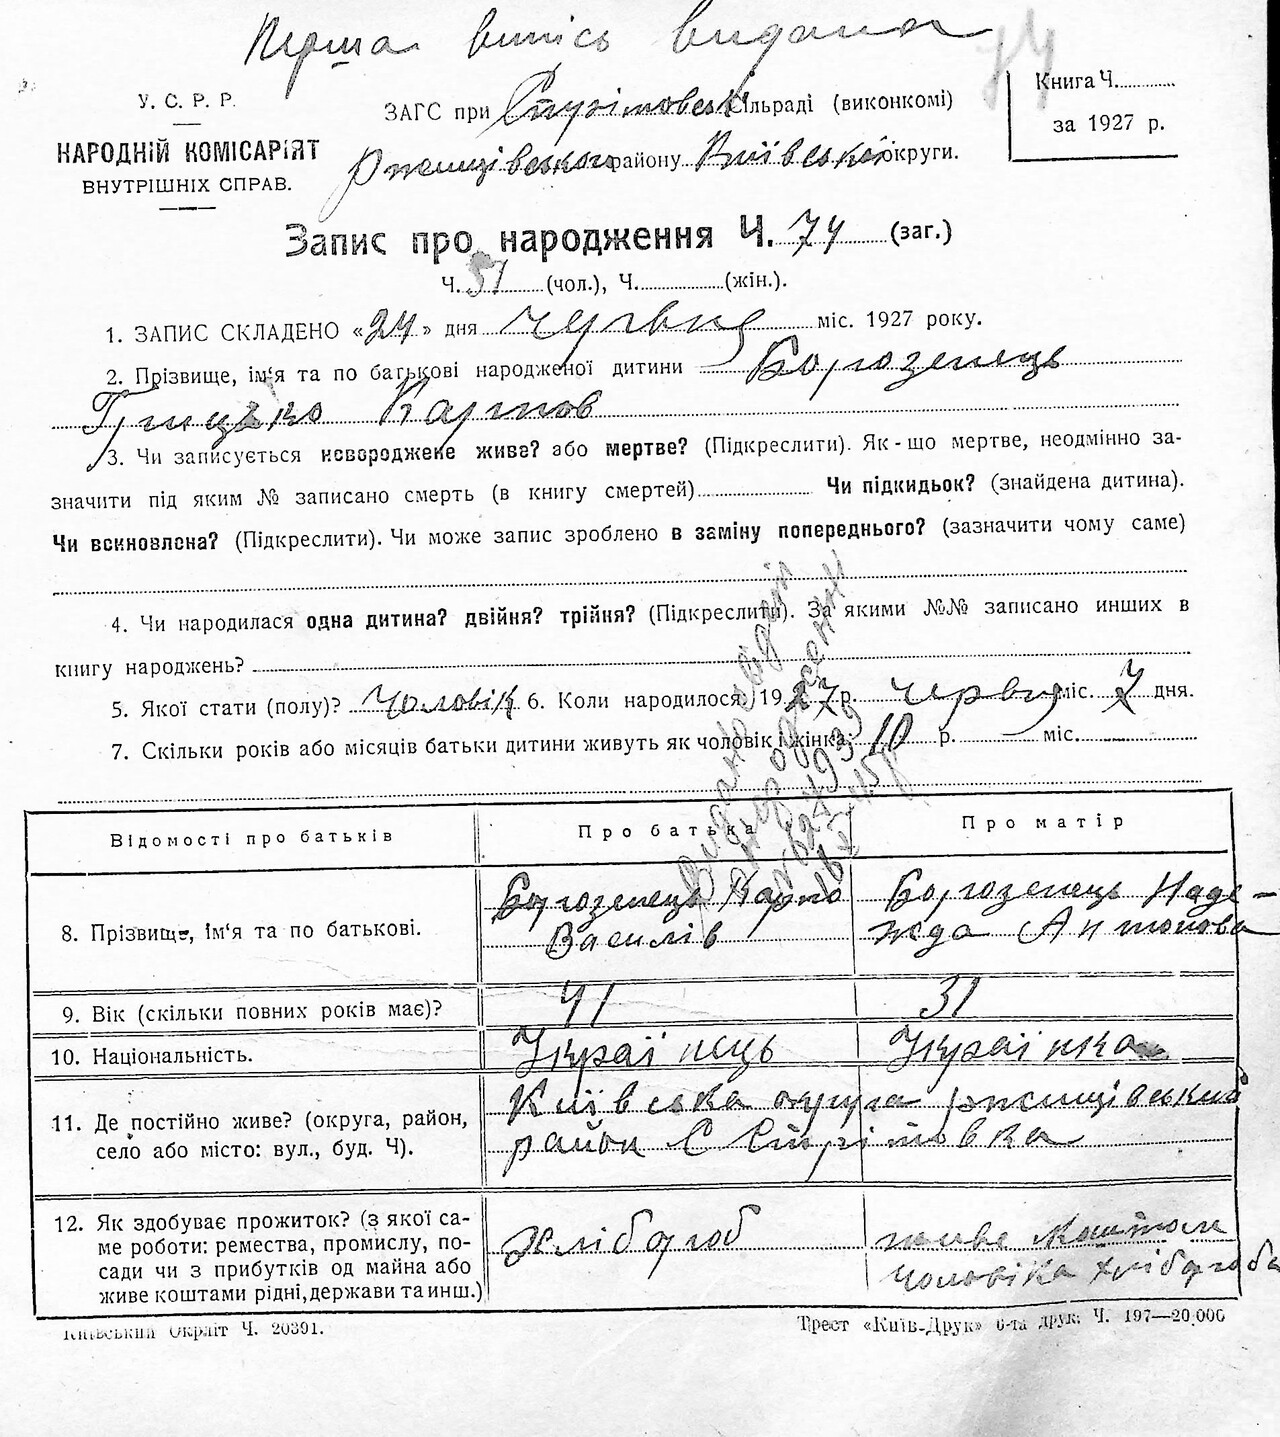 Перша випісь видана
74
У. С. Р. Р.
НАРОДНІЙ КОМІСАРІЯТ
ВНУТРІШНІХ СПРАВ.
ЗАГС при Стритовськ сільраді (виконкомі)
Ржищівського району Київської округи.
Книга Ч.
за 1927 р.
Запис про народження Ч. 74 (заг.)
Ч. 51 (чол.), Ч. (жін.).
1. ЗАПИС СКЛАДЕНО «24» дня червня міс. 1927 року.
2. Прізвище, ім'я та по батькові народженої дитини Борозенець
Грицько Карпов
3. Чи записується новороджене живе? або мертве? (Підкреслити). Як-що мертве, неодмінно за-
значити під яким № записано смерть (в книгу смертей) Чи підкидьок? (знайдена дитина).
Чи всиновлена? (Підкреслити). Чи може запис зроблено в заміну попереднього? (зазначити чому саме)
4. Чи народилася одна дитина? двійня? трійня? (Підкреслити). За якими №№ записано инших в
книгу народжень?
5. Якої стати (полу)? Чоловік 6. Коли народилося 1927 р. червня міс. 7 дня.
7. Скільки років або місяців батьки дитини живуть як чоловік і жінка 10 р. міс.
Відомості про батьків
Про батька
Про матір
8. Прізвище, ім'я та по батькові.
Борозенець Карпо
Василів
Борозенець Наде-
жда Антонова
9. Вік (скільки повних років має)?
41
31
10. Національність.
Українець
Україінка
11. Де постійно живе? (округа, район,
село або місто: вул., буд. Ч).
Київська округа ржищівський
район С Стритовка
12. Як здобуває прожиток? (з якої са-
ме роботи: ремества, промислу, по-
сади чи з прибутків од майна або
живе коштами рідні, держави та инш.)
Хлібороб
живе коштом
чоловіка хлібороба
Київський Окрліт Ч. 20391.
Трест «Київ-Друк» 6-та друк. Ч. 197—20.000